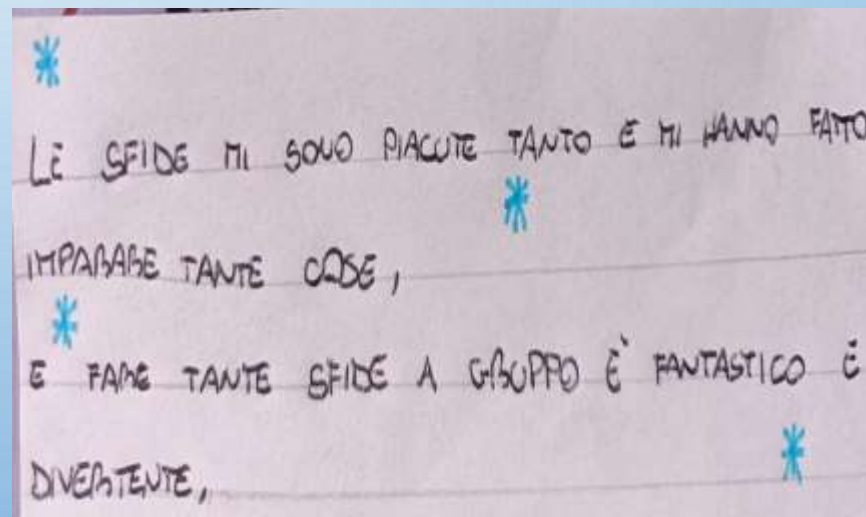 LE SFIDE MI SONO PIACUTE TANTO E MI HANNO FATTO
IMPARARE TANTE COSE,
E FARE TANTE SFIDE A GRUPPO È FANTASTICO È
DIVERTENTE,